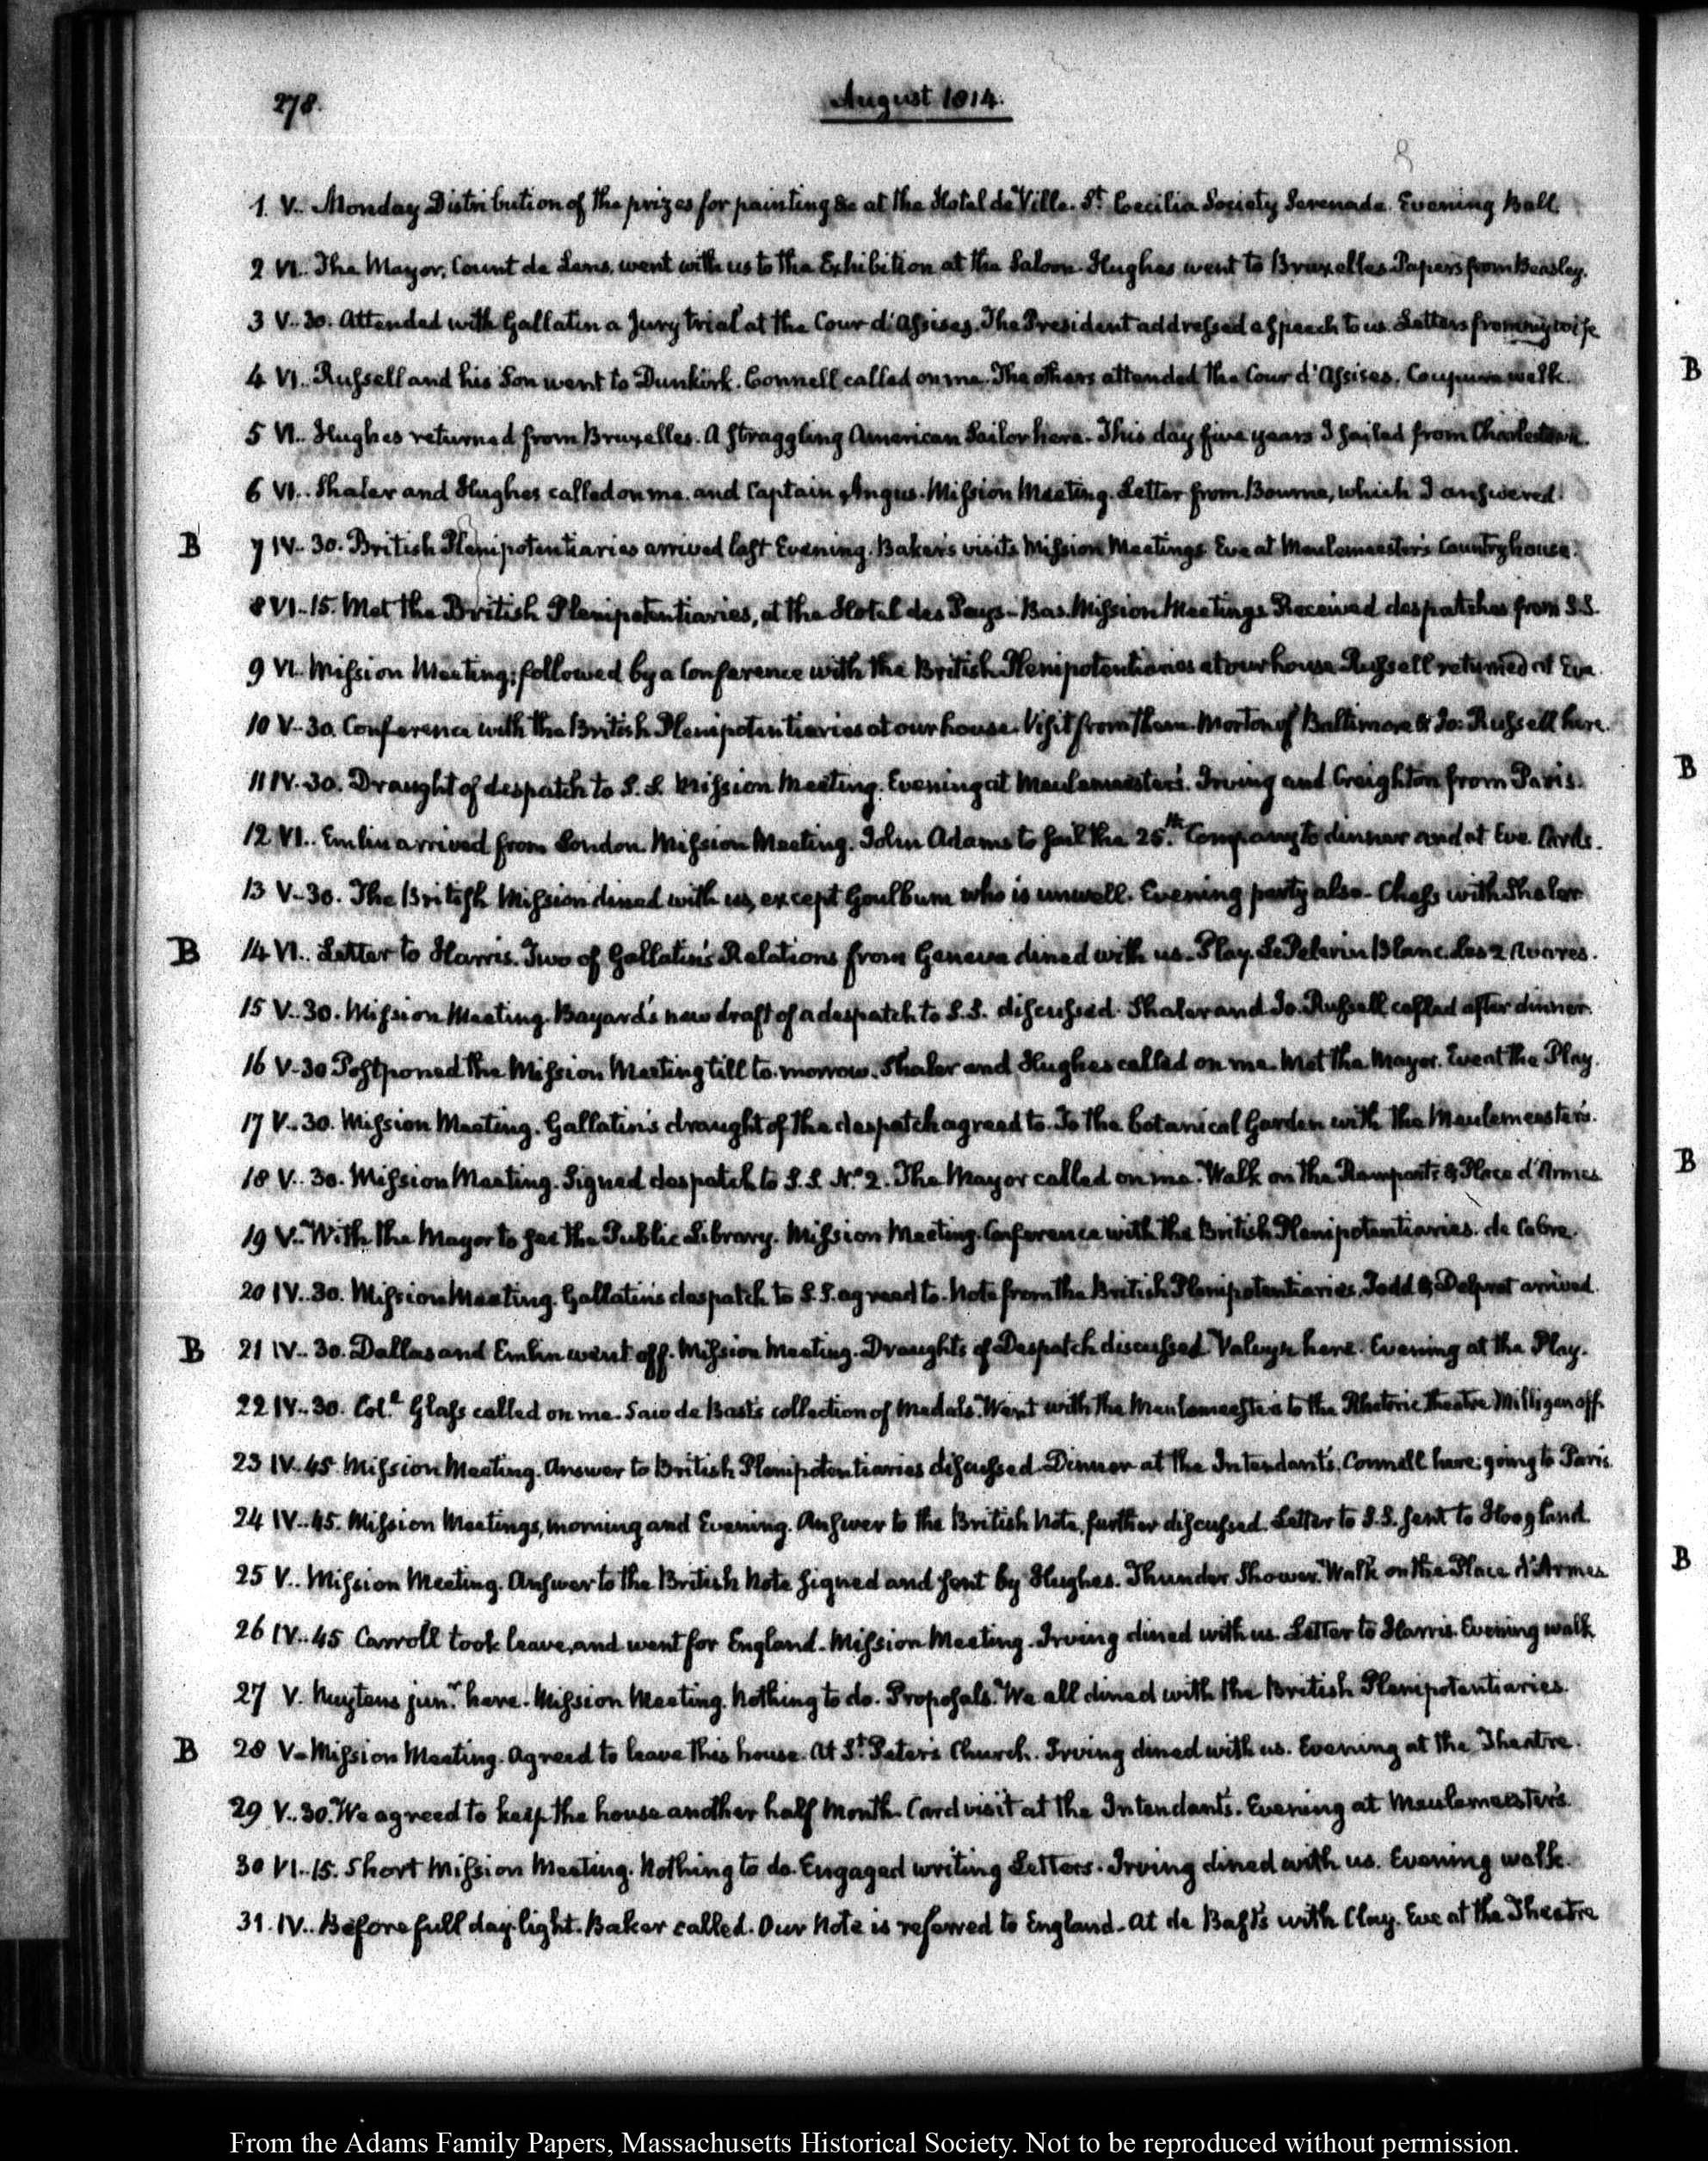 278.
August 1814.
1. V.. Monday Distribution of the prizes for painting &c at the Hotel de Ville. St. Cecilia Society Serenade. Evening Ball.
2 VI.. The Mayor, Count de Lens, went with us to the Exhibition at the Saloon. Hughes went to Bruxelles. Papers from Beasley.
3 V..30. Attended with Gallatin a Jury trial at the Cour d'Assises. The President addressed a speech to us. Letters from my wife
4 VI.. Russell and his Son went to Dunkirk. Connell called on me. The others attended the Cour d'Assises. Coupure walk.
5 VI.. Hughes returned from Bruxelles. A straggling American Sailor here. This day five years I sailed from Charlestown.
6 VI.. Shaler and Hughes called on me. and Captain Angus. Mission Meeting. Letter from Bourne, which I answered.
B 7 IV..30. British Plenipotentiaries arrived last Evening. Baker's visits Mission Meetings Eve at Meulemeester's Countryhouse.
8 VI..15. Met the British Plenipotentiaries, at the Hotel des Pays-Bas. Mission Meetings Received despatches from S.S.
9 VI. Mission Meeting; followed by a Conference with the British Plenipotentiaries at our house Russell returned at Eve.
10 V..30. Conference with the British Plenipotentiaries at our house. Visit from them. Morton of Baltimore & Jo: Russell here.
11 IV.30. Draught of despatch to S.S. Mission Meeting. Evening at Meulemeester's. Irving and Creighton from Paris.
12 VI.. Emlin arrived from London. Mission Meeting. John Adams to sail the 25.th Company to dinner and at Eve. Cards.
13 V..30. The British Mission dined with us, except Goulburn who is unwell. Evening party also. Chess with Shaler
B 14 VI.. Letter to Harris. Two of Gallatin's Relations from Geneva dined with us. Play. Le Pelerin Blanc. Les 2 Avares.
15 V..30. Mission Meeting. Bayard's new draft of a despatch to S.S. discussed. Shaler and Jo. Russell called after dinner.
16 V.30 Postponed the Mission Meeting till to-morrow. Shaler and Hughes called on me. Met the Mayor. Eve at the Play.
17 V..30. Mission Meeting. Gallatin's draught of the despatch agreed to. To the botanical Garden with the Meulemeester's.
18 V..30. Mission Meeting. Signed despatch to S.S. No. 2. The Mayor called on me. Walk on the Ramparts & Place d'Armes
19 V.. With the Mayor to see the Public Library. Mission Meeting. Conference with the British Plenipotentiaries. de Cabre.
20 IV..30. Mission Meeting. Gallatin's despatch to S.S. agreed to. Note from the British Plenipotentiaries. Todd & Delprat arrived.
B 21 IV..30. Dallas and Emlin went off. Mission Meeting. Draughts of Despatch discussed. here. Evening at the Play.
22 IV..30. Col.l Glass called on me. Saw de Bast's collection of Medals. Went with the Meulemeester's to the Rhetoric theatre Milligan off.
23 IV.45. Mission Meeting. Answer to British Plenipotentiaries discussed. Dinner at the Intendant's. Connell here; going to Paris.
24 IV..45. Mission Meetings, morning and Evening. Answer to the British Note, further discussed. Letter to S.S. sent to Hoogland.
25 V.. Mission Meeting. Answer to the British Note signed and sent by Hughes. Thunder Shower. Walk on the Place d'Armes
26 IV..45 Carroll took leave, and went for England. Mission Meeting. Irving dined with us. Letter to Harris. Evening walk
27 V. Nuytens jun.r here. Mission Meeting. Nothing to do. Proposals. We all dined with the British Plenipotentiaries.
B 28 V. Mission Meeting. Agreed to leave this house. At St. Peter's Church. Irving dined with us. Evening at the Theatre.
29 V..30. We agreed to keep the house another half Month. Card visit at the Intendant's. Evening at Meulemeester's.
30 VI..15. Short Mission Meeting. Nothing to do. Engaged writing Letters. Irving dined with us. Evening walk.
31. IV.. Before full day-light. Baker called. Our Note is referred to England. At de Bast's with Clay. Eve at the Theatre
B
B
B
B
From the Adams Family Papers, Massachusetts Historical Society. Not to be reproduced without permission.